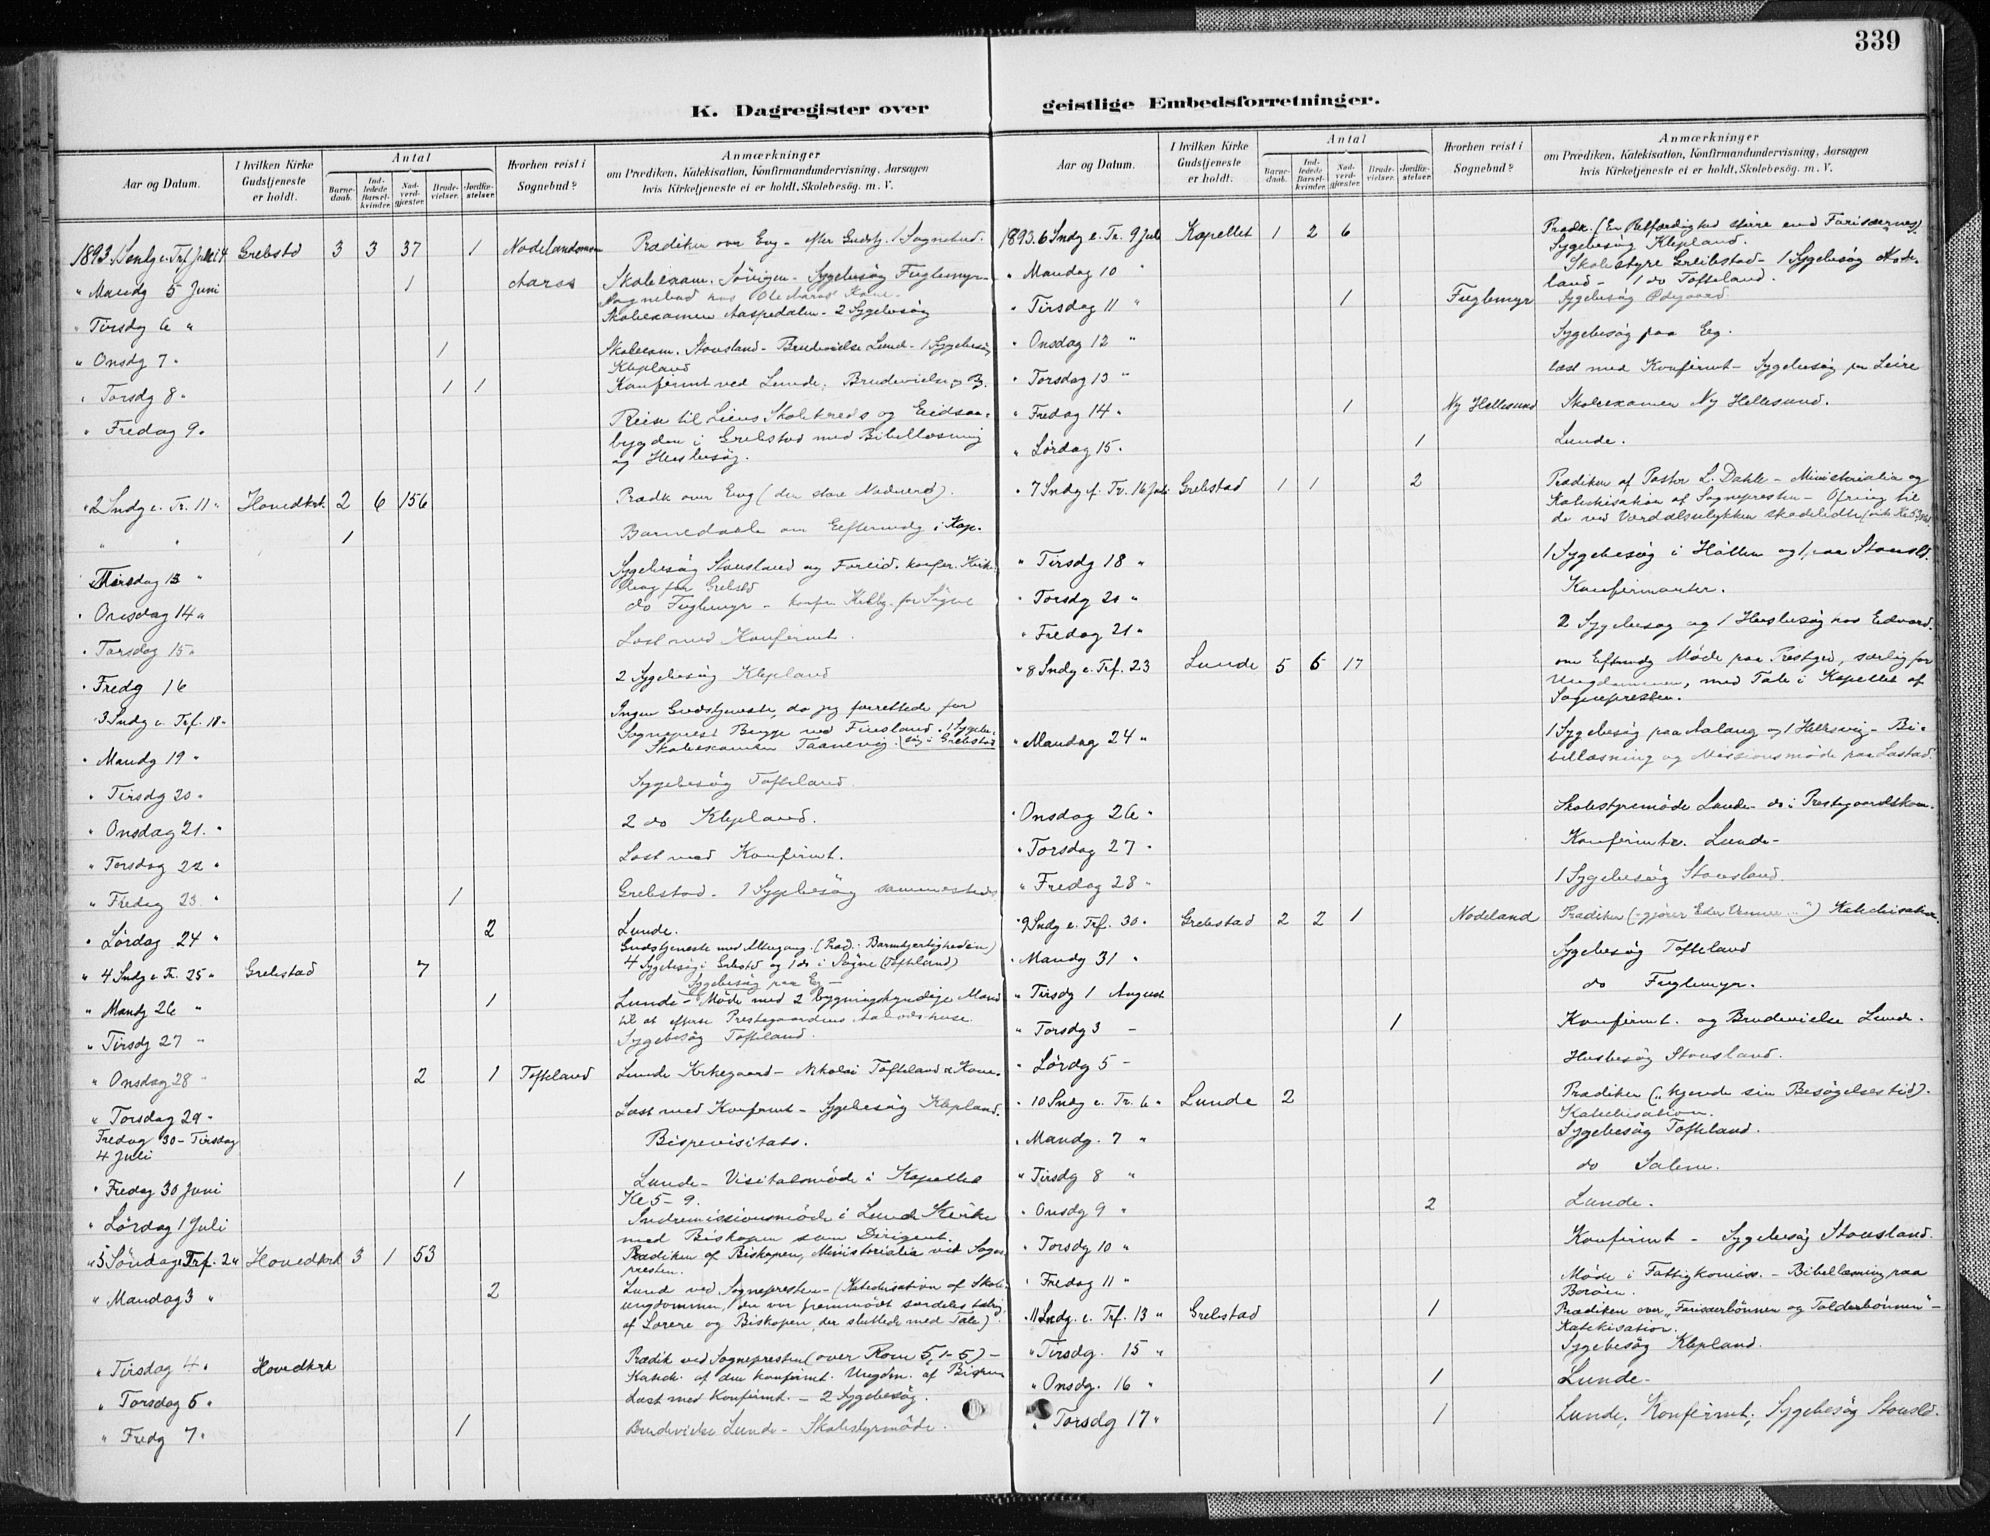 339
K. Dagregister over
geistlige Embedsforretninger.
Aar og Datum.
I hvilken Kirke Gudstjeneste er holdt.
Antal
Barnedaab.
Indledede Barselkvinder.
Nadverdgjæster.
Brudevielser.
Jordfæstelser.
Hvorhen reist i Sognebud?
Anmærkninger
om Prædiken, Katekisation, Konfirmandundervisning, Aarsagen
hvis Kirketjeneste ei er holdt, Skolebesög. m. V.
1893. Grebstd 3 3 37 1 Prædiken over Evg - efter Gudstj. 1 Sognebud.
" Mandg 5 Juni 1 Aaros Skoleexam. Sygebesög Fuglemyr
Sognebud hos Ole Aaros' Kone.
" Tirsdg 6 " Skoleexamen Aaspedalen - 2 Sygebesög
" Onsdg 7 " 1 Skoleexam. Stousland - Brudevielse Lund - 1 Sygebesög
Klepland
" Torsdg 8 " 1 1 Konfirmt ved Lunde, Brudevielse
" Fredag 9 " Reise til Liens Skolekreds og
bygden i Grebstad med Bibellæsning
og Husbesög.
" 2 Sndg e. Tr. 11 " Hovedkrk. 2 6 156 Prædk over Evg (den store Nadverd).
" " 1 Barnedaab om Eeftermidg i Kap.
Tirsdag 13 " Sygebesög Stousland og
for Grebstd
" Onsdag 14 " do Fuglemyr - for Søgne
" Torsdag 15 " Læst med Konfirmt.
" Fredg 16 2 Sygebesög Klepland
" 3 Sndg e. Trf. 18 " Ingen Gudstjeneste, da jeg forrettede for
Sogneprest Bugge ved Finsland. 1 Sygebesög i Grebstad
" Mandg 19 " Skoleexamen Taanevig.
" Tirsdg 20 " Sygebesög Tofteland.
" Onsdag 21. " 2 do Klepland.
" Torsdag 22 " Læst med Konfirmt.
" Fredag 23 " 1 Grebstad - 1 Sygebesög sammesteds
" Lördag 24 " 2 Lunde.
" 4 Sndg e. Tr. 25 " Grebstad 7 Gudstjeneste med Altergang. (Præd.: Barmhjertigheden)
4 Sygebesög i Grebstd og 1 do i Søgne (Tofteland)
Sygebesög paa Eg -
" Mandg 26 " 1 Lunde - Möde med 2 bygningskyndige Mænd
til at efterse Prestegaardens
" Tirsdg 27 " Sygebesög Tofteland.
" Onsdag 28 " 2 1 Tofteland Lunde Kirkegaard - Nikolai Tofteland & Kone
" Torsdag 29 " Læst med Konfirmt - Sygebesög Klepland.
Fredag 30 - Tirsdag
4 Juli Bispevisitats.
" Fredag 30 Juni 1 Lunde - Visitatsmöde i Kapellet
Kl 5 - 9.
" Lördag 1 Juli Indremissionsmöde i Lunde Kirke
med Biskopen som Dirigent.
" 5 Söndag e. Trf. 2 " Hovedkrk 3 1 53 Prædiken af Biskopen, Ministerialia ved Sogne-
presten.
" Mandag 3 " 2 Lund ved Sognepresten - (Katekisation af Skole-
ungdommen, der var fremmödt særdeles talrig,
af Lærere og Biskopen, der sluttede med Tale).
" Tirsdag 4 " Hovedkrk Prædik ved Sognepresten (over Rom 5, 1-5) -
Katek. af den konfirmt. Ungdm. af Biskpen
" Torsdag 6 " Læst med Konfirmt. - 2 Sygebesög.
" Fredg 7 " 1 Brudevielse Lunde - Skolestyrmöde.
Aar og Datum.
I hvilken Kirke Gudstjeneste er holdt.
Antal
Barnedaab.
Indledede Barselkvinder.
Nadverdgjæster.
Brudevielser.
Jordfæstelser.
Hvorhen reist i Sognebud?
Anmærkninger
om Prædiken, Katekisation, Konfirmandundervisning, Aarsagen
hvis Kirketjeneste ei er holdt, Skolebesög. m. V.
1893. 6 Sndg e. Tr. 9 Juli Kapellet 1 2 6 Prædk. (En Retfærdighed større end Farisæernes)
Sygebesög Klepland.
" Mandag 10 " Skolestyre Greibstad - 1 Sygebesög Node-
land - 1 do Tofteland.
" Tirsdg 11 " 1 Fuglemyr Sygebesög Ødegaard
" Onsdag 12 " Sygebesög paa Eeg.
" Torsdag 13 " læst med Konfirmt - Sygebesög paa Leire
" Fredag 14 " 1 Ny Hellesund Skoleexamen Ny Hellesund.
" Lørdag 15 " 1 Lunde.
" 7 Sndg e. Tr. 16 Juli Grebstad 1 1 2 Prædiken af Pastor L. Dahle - Ministerialia og
Katekisation af Sognepresten - Ofring til
de ved Værdalsulykken skadelidte
" Tirsdg 18 " 1 Sygebesög i Hölllen og 1 paa Stousld.
" Torsdg 20 " Konfirmanter.
" Fredag 21 " 2 Sygebesög og 1 Husbesög hos Edvard.
" 8 Sndg e. Trf. 23 Lunde 5 6 17 om Eftmdg Møde paa Prestgrd, særlig for
Ungdommen, med Tale i Kapellet af
Sognepresten.
" Mandag 24 " 1 Sygebesög paa Aalang og 1 Hellesvig - Bi-
bellæsning og Missionsmöde paa Lastad.
" Onsdag 26 " Skolestyremöde Lunde - do i Prestegaardskom.
" Torsdag 27 " Konfirmtr. Lunde -
" Fredag 28 " 1 Sygebesög Stousland.
" 9 Sndg e. Trf. 30 " Grebstad 2 2 1 Nodeland Prædiken ("gjører Eder Venner ...") Katekisation.
" Mandg 31 " Sygebesög Tofteland
" Tirsdg 1 August do Fuglemyr.
" Torsdg 3 - 1 Konfirmt. og Brudevielse Lunde.
" Lørdg 5 - Husbesög Stousland.
" 10 Sndg e. Tr. 6 " Lunde 2 Prædiken ("kjende sin Besøgelsestid).
Katekisation.
" Mandg. 7 " Sygebesög Tofteland.
" Tirsdg 8 " do Salem.
" Onsdg 9 " 2 Lunde.
" Torsdg 10 " Konfirmt - Sygebesög Stousland.
" Fredag 11 " Møde i Fattigkomiss. - Bibellæsning paa
Borøen.
" 11 Sndg. e. Trf. 13 " Grebstad 1 Prædiken over "Farisæerbønnen og Tolderbönnen" -
Katekisation.
" Tirsdg. 15 " Sygebesög Klepland.
" Onsdg. 16 " 1 Lunde -
" Torsdg 17 " 1 Lunde, Konfirmt; Sygebesög Stousld.